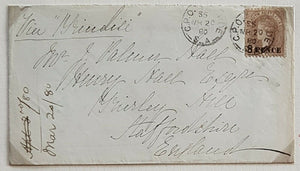 Via "Brindisi"
Mr J Palmer Hall
Henry Hall Esqre
Brierley Hill
Staffordshire
England
Mar 20/80
G.P.O.
MR 20
80
G.P.O.
MR 20
80
8 PENCE